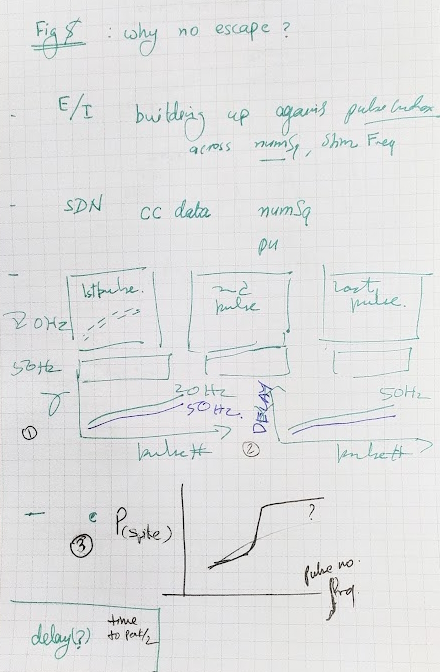 Fig 8 : why no escape ?
- E/I building up against pulse index
across numSq, Stim Freq
- SDN CC data numSq
-
1st pulse. 2nd pulse last pulse.
20Hz
50Hz
γ 20Hz 50Hz. DELAY 50Hz
① pulse # ② pulse #
- P(spike) ?
③ pulse no.
freq.
delay(?) time
to peak/2